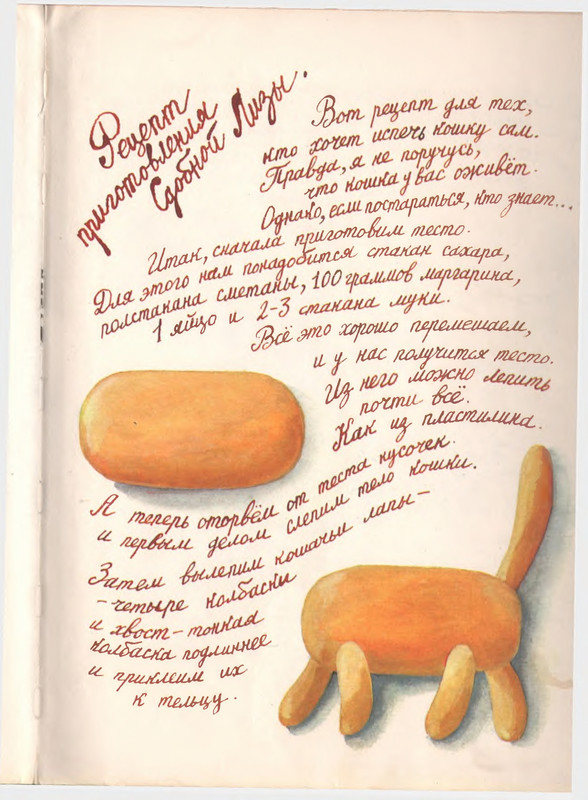 Рецепт
приготовления
Сдобной Лизы.
Вот рецепт для тех,
кто хочет испечь кошку сам.
Правда, я не поручусь,
что кошка у вас оживёт.
Однако, если постараться, кто знает...
Итак, сначала приготовим тесто.
Для этого нам понадобится стакан сахара,
полстакана сметаны, 100 граммов маргарина,
1 яйцо и 2-3 стакана муки.
Всё это хорошо перемешаем,
и у нас получится тесто.
Из него можно лепить
почти всё.
Как из пластилина.
А теперь оторвём от теста кусочек
и первым делом слепим тело кошки.
Затем вылепим кошачьи лапы –
– четыре колбаски
и хвост – тонкая
колбаска подлиннее
и приклеим их
к тельцу.